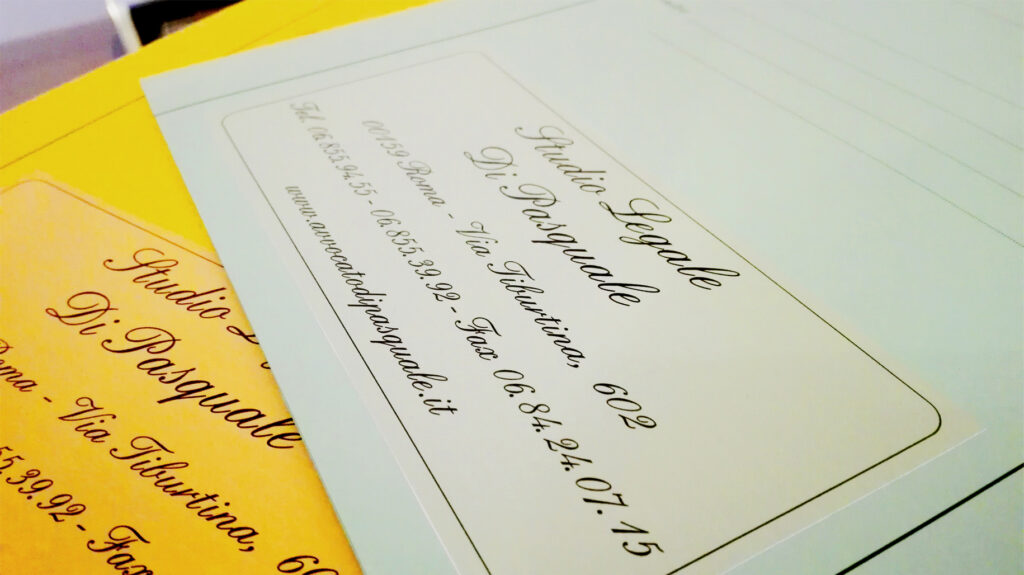 Studio Legale
Di Pasquale
00159 Roma - Via Tiburtina, 602
Tel. 06.855.94.55 - 06.855.39.92 - Fax 06.84.24.07.15
www.avvocatodipasquale.it
Studio
Di Pasquale
Roma - Via Tiburtina, 60
55.39.92 - Fax